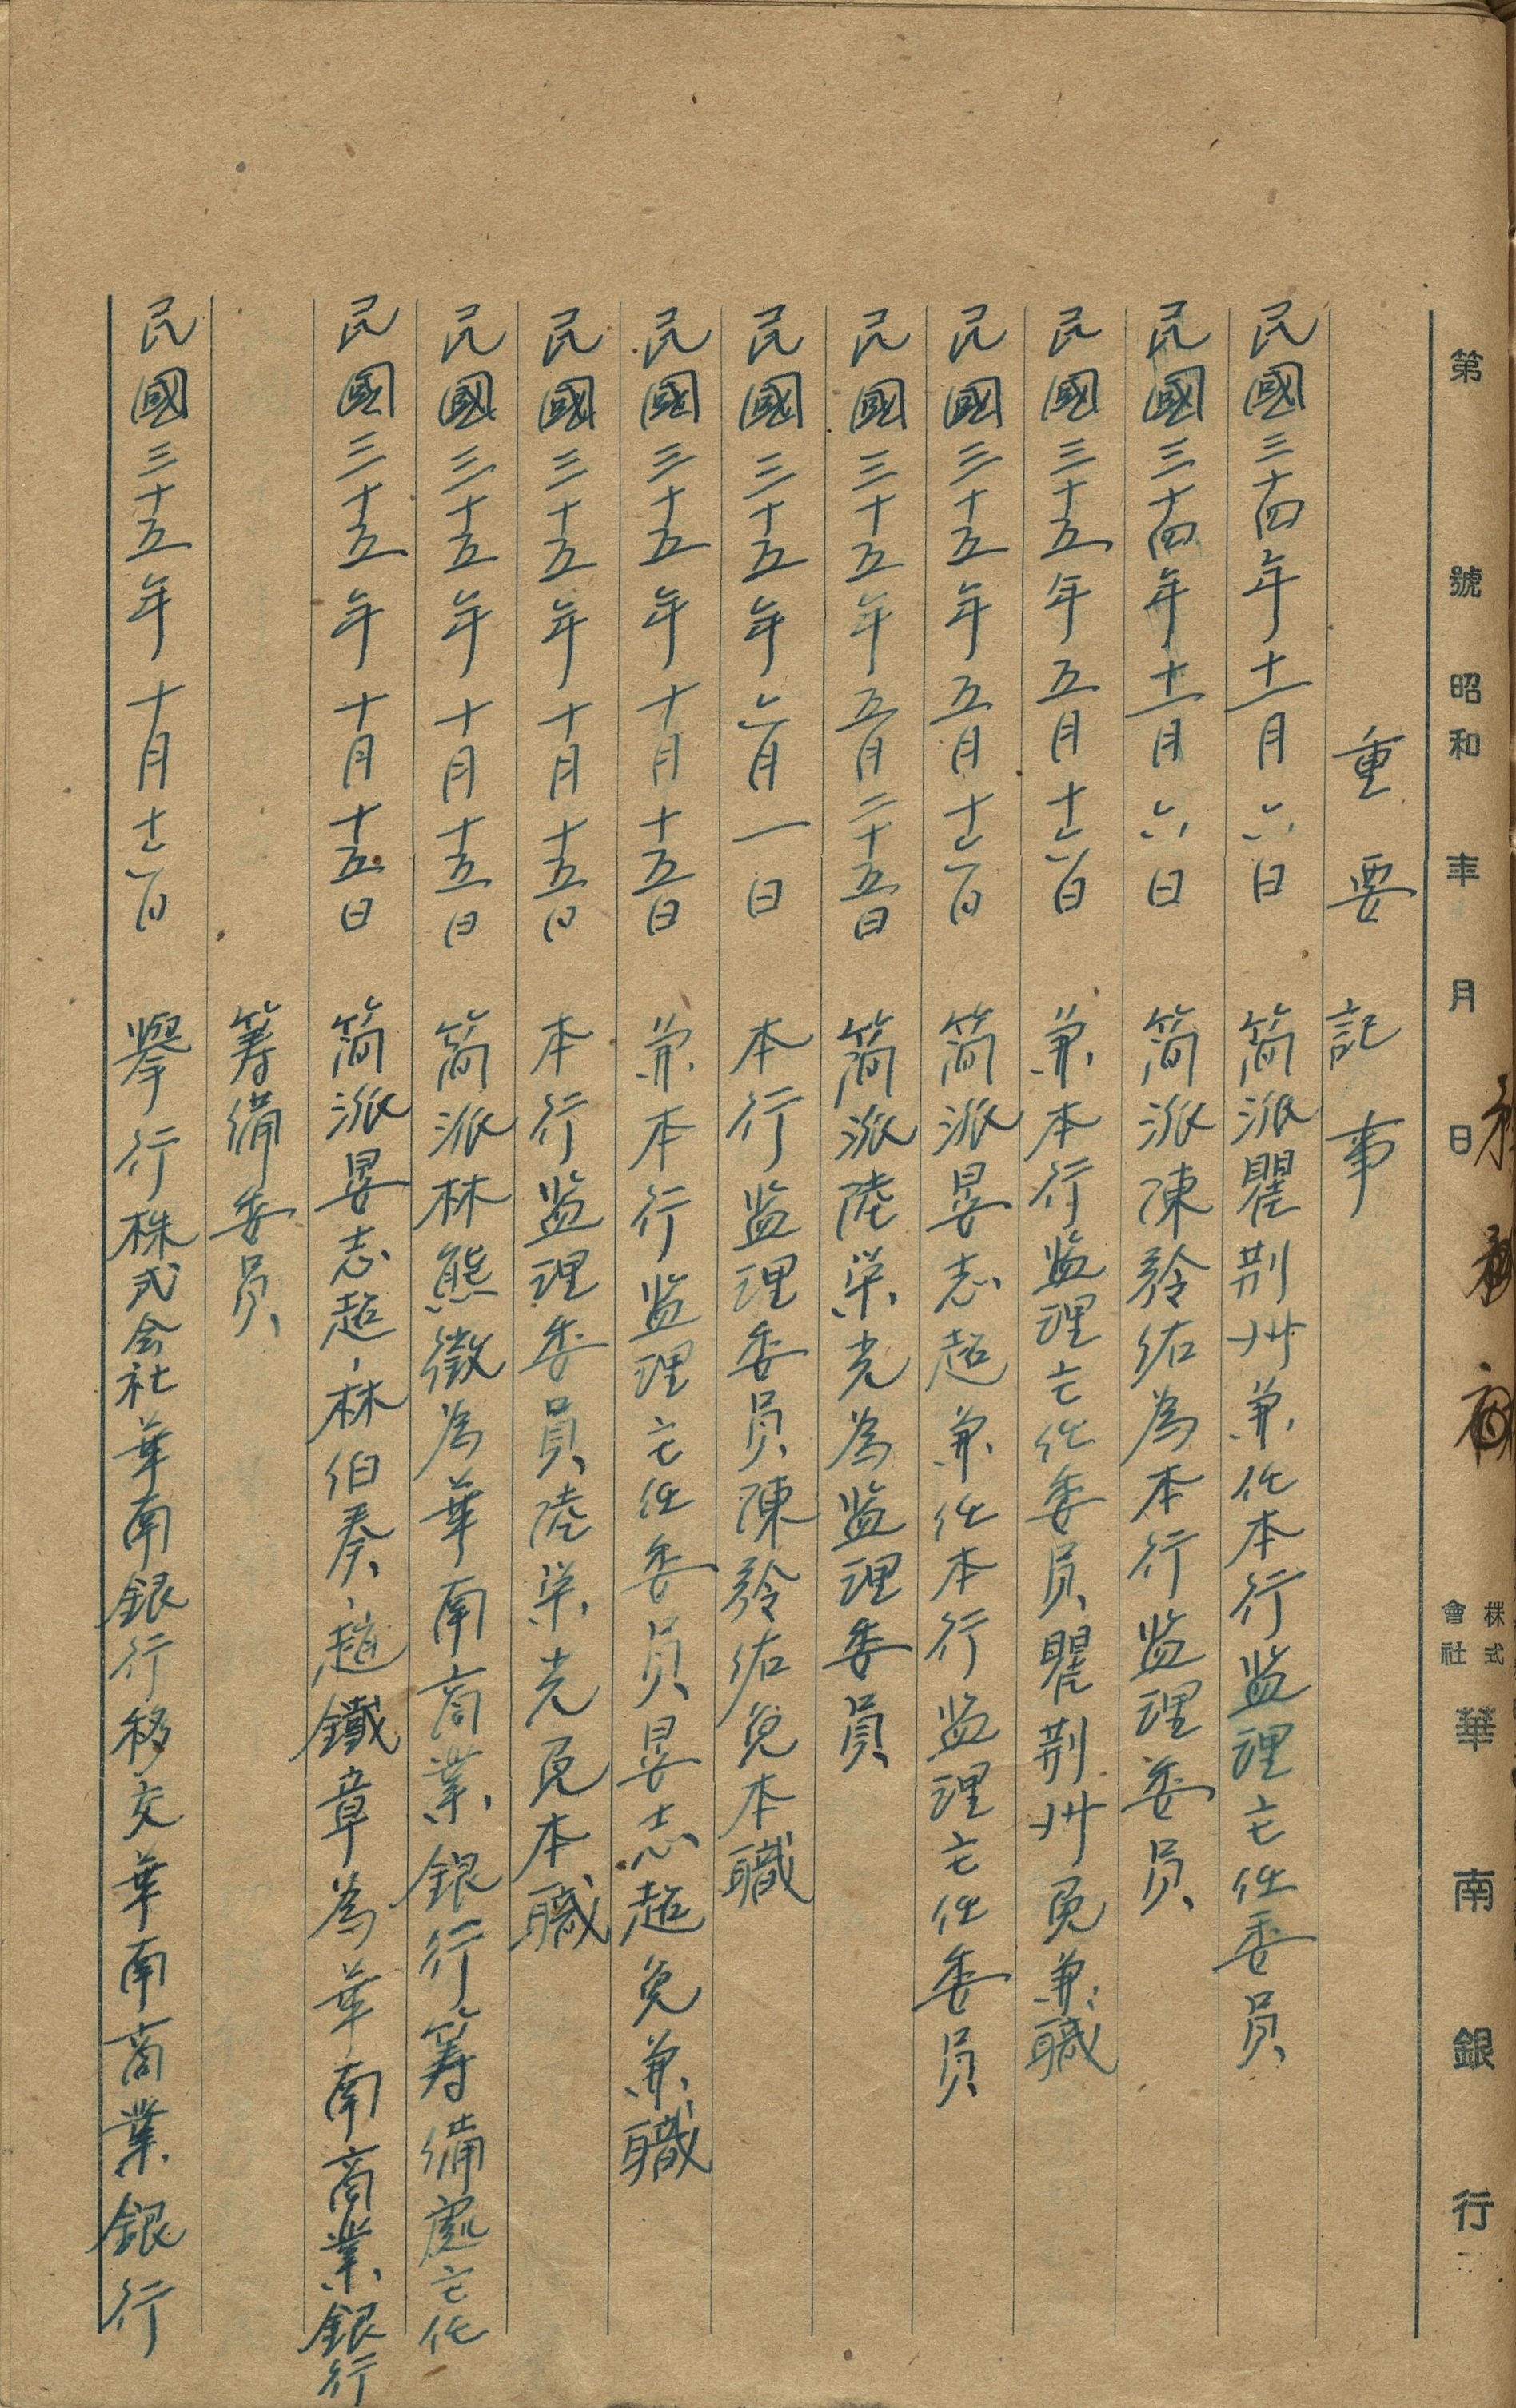 第 號 昭和 年 月 日 株式會社 華南銀行
重要記事
民國三十四年十一月六日 简派瞿荆州兼任本行监理主任委員
民國三十四年十一月六日 简派陳聆佑為本行监理委員
民國三十五年五月十六日 兼本行监理主任委員瞿荆州免兼職
民國三十五年五月十六日 简派晏志超兼任本行监理主任委員
民國三十五年五月二十五日 简派陸栄光為监理委員
民國三十五年六月一日 本行监理委員陳聆佑免本職
民國三十五年十月十五日 兼本行监理主任委員晏志超免兼職
民國三十五年十月十五日 本行监理委員陸栄光免本職
民國三十五年十月十五日 简派林熊徵為華南商業銀行筹備處主任
民國三十五年十月十五日 简派晏志超、林伯奏、趙鐵章為華南商業銀行
筹備委員
民國三十五年十月十六日 擧行株式会社華南銀行移交華南商業銀行